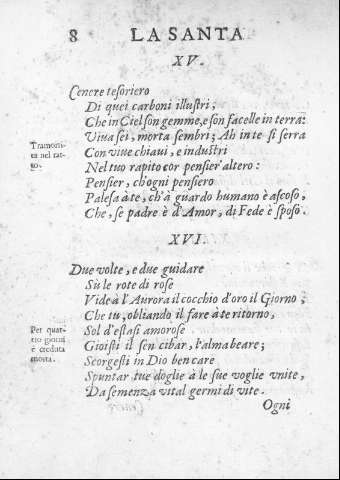 8 LA SANTA
XV.
Cenere tesoriero
Di quei carboni illustri;
Che in Ciel son gemme, e son facelle in terra:
Viva sei, morta sembri; Ah in te si serra
Con vive chiavi, e industri
Nel tuo rapito cor pensier' altero:
Pensier, ch'ogni pensiero
Palesa à te, ch'à guardo humano è ascoso,
Che, se padre è d'Amor, di Fede è sposo.
Tramorti-
ta nel rat-
to.
XVI.
Due volte, e due guidare
Sù le rote di rose
Vide à l'Aurora il cocchio d'oro il Giorno;
Che tu, obliando il fare à te ritorno,
Sol d'estasi amorose
Gioisti il sen cibar, l'alma beare;
Scorgesti in Dio ben care
Spuntar tue doglie à le sue voglie unite,
Da semenza vital germi di vite.
Per quat-
tro giorni
è creduta
morta.
Ogni